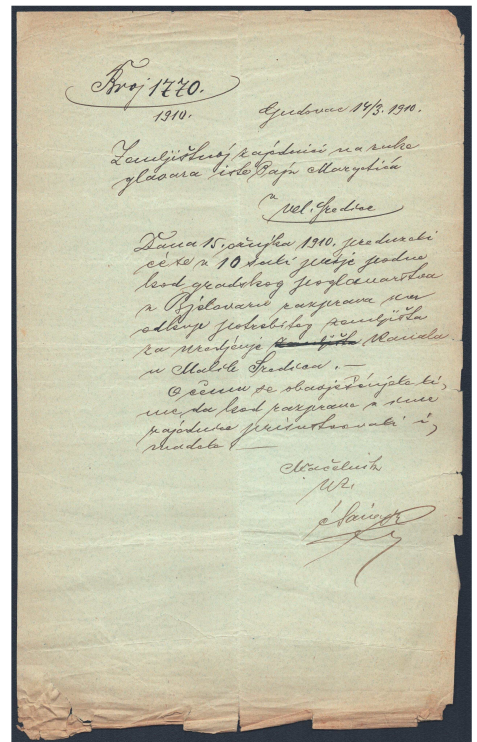 Broj 1770.
1910.
Gudovac 14/3. 1910.
Zemljištnoj zajednici na ruke
glavara iste Paje Margetića
u
Vel. Sredice
Dana 15. ožujka 1910. preduzeti
ćete u 10 sati prije podne
kod gradskog poglavarstva
u Bjelovaru razprava
odkup potrebitog zemljišta
za uredjenje zemljišta Kanala
u Malile Sredica. —
O čemu se obavješćujete ti,
me, da kod razprave u ime
zajednice prisustvovati i,
madete —
Načelnik